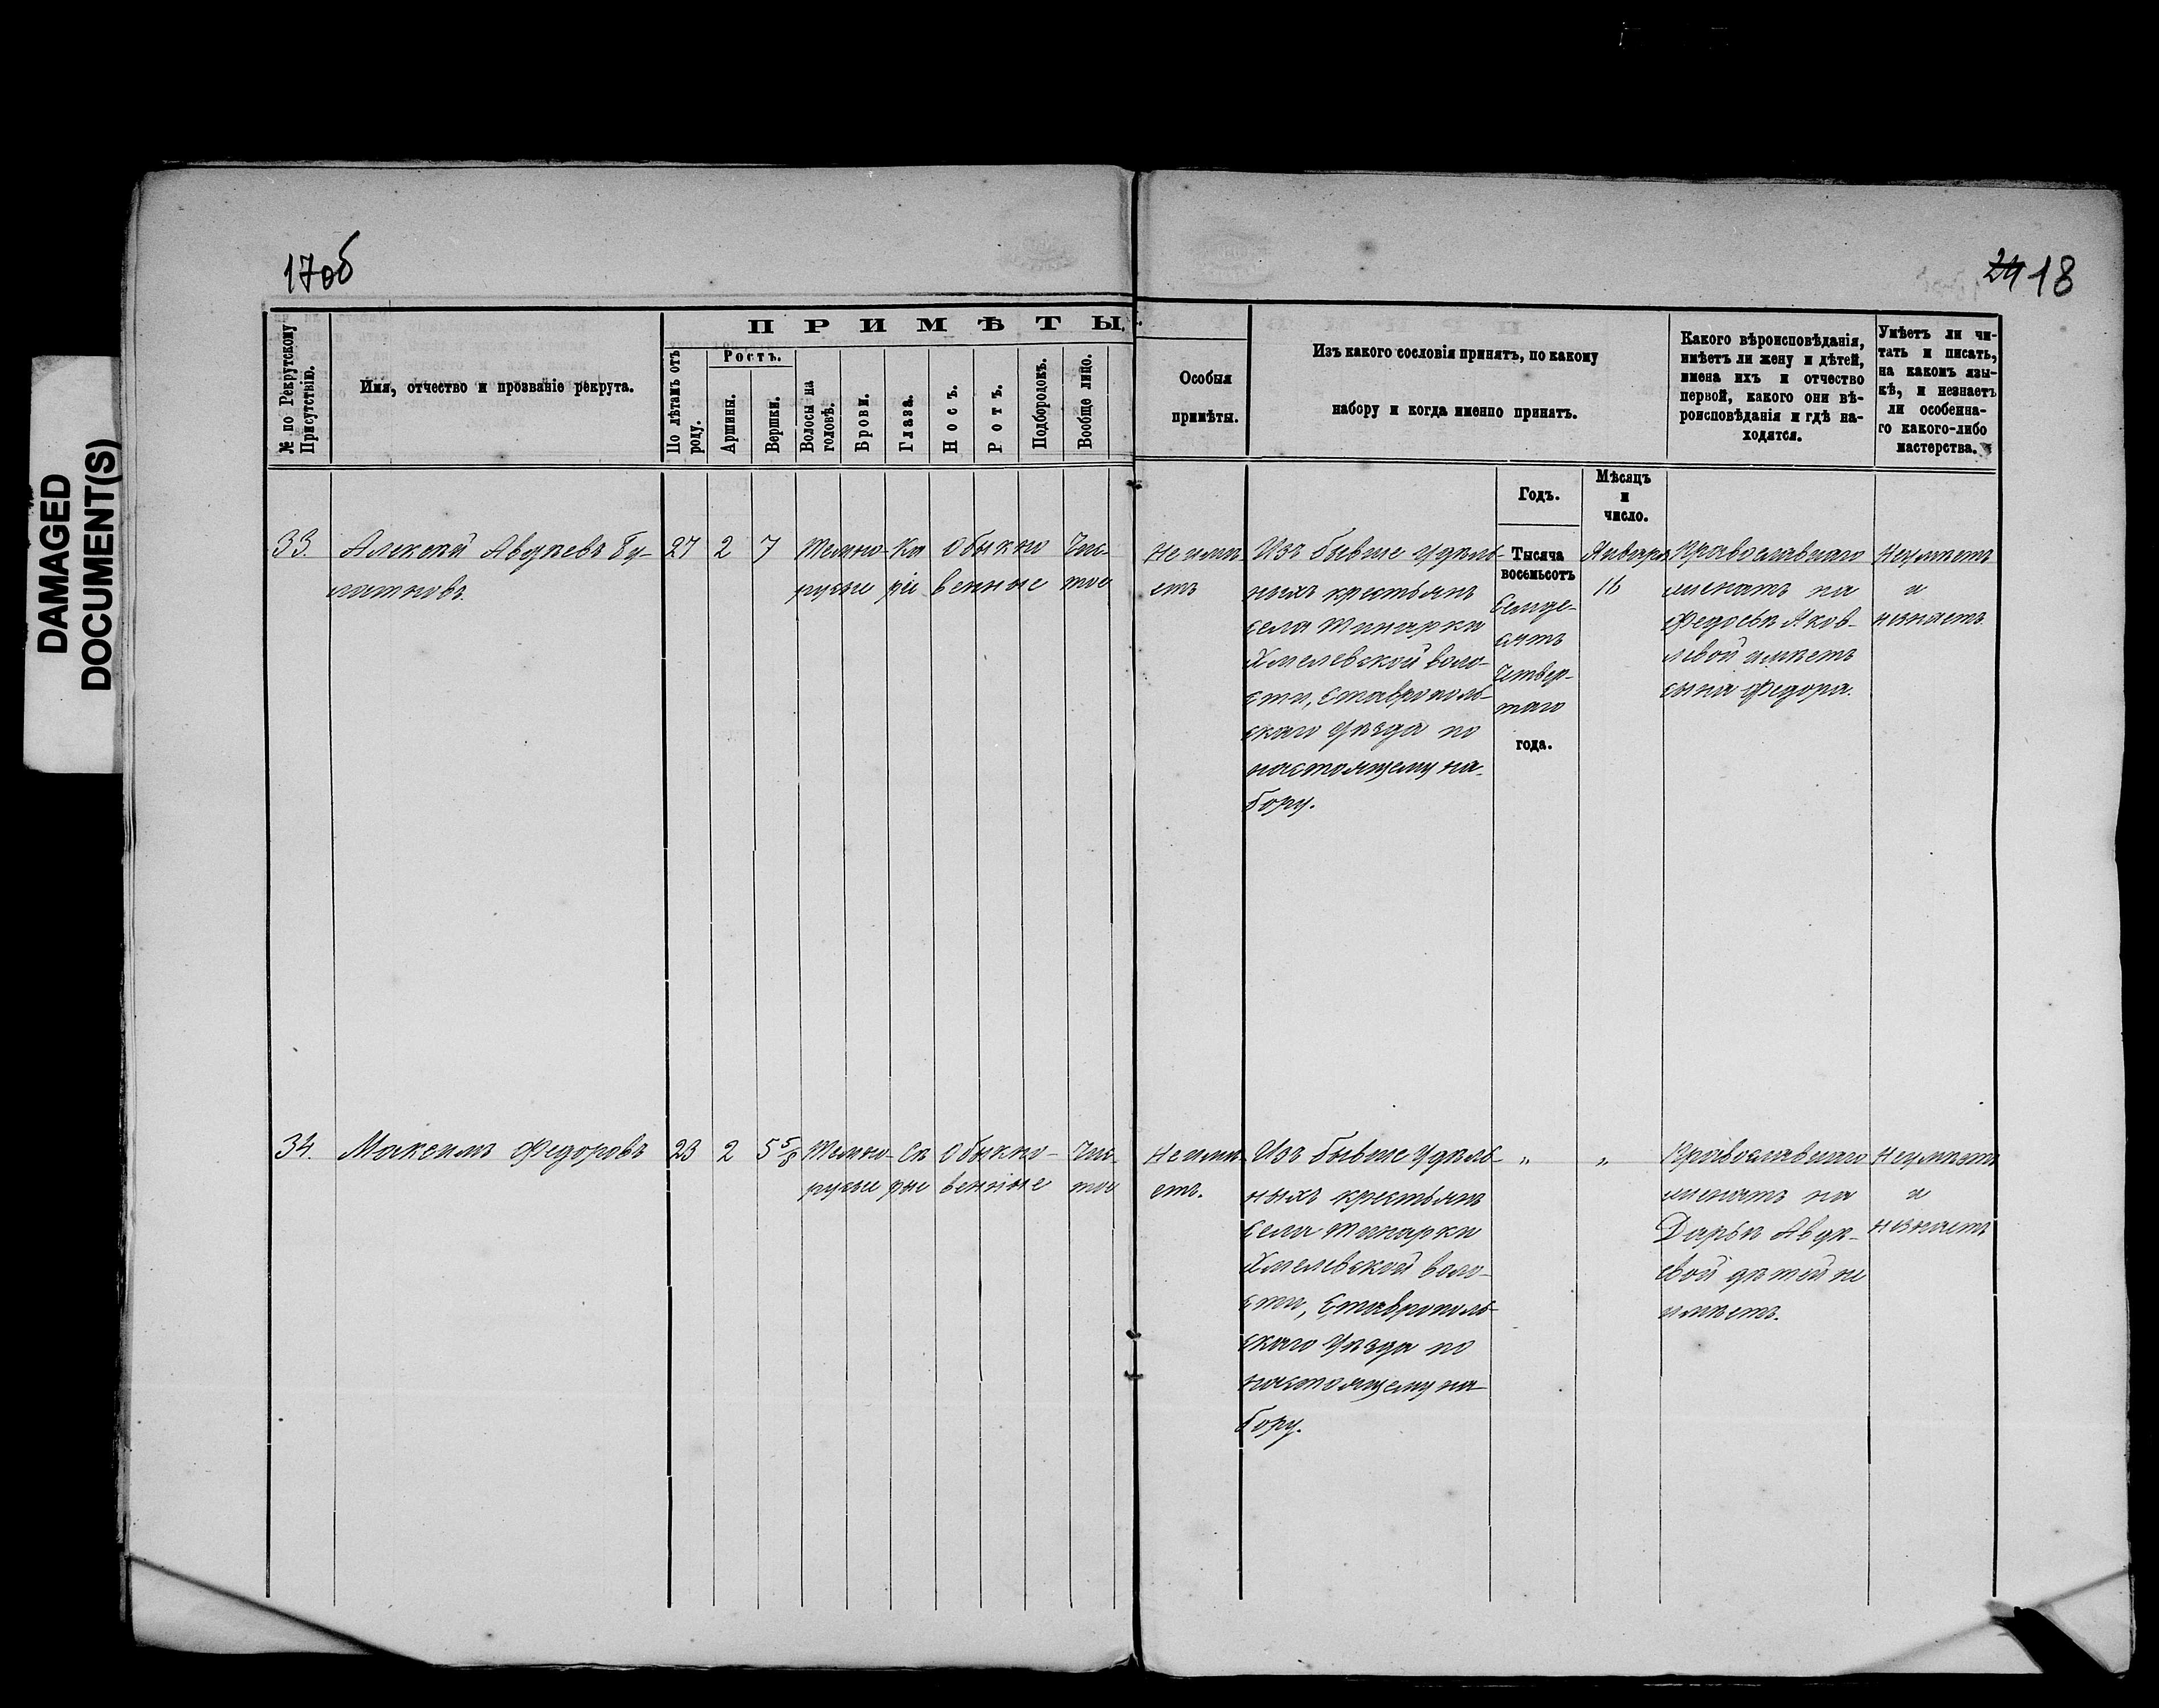 DAMAGED
DOCUMENT(S)
17об
24 18
ПРИМѢТЫ.
№ по Рекрутскому
Присутствію.
Имя, отчество и прозваніе рекрута.
По лѣтамъ отъ
роду.
Ростъ.
Аршины.
Вершки.
Волосы на
головѣ.
Брови.
Глаза.
Носъ.
Ротъ.
Подбородокъ.
Вообще лицо.
Особыя
примѣты.
Изъ какого сословія принятъ, по какому
набору и когда именно принятъ.
Какого вѣроисповѣданія,
имѣетъ ли жену и дѣтей,
имена ихъ и отчество
первой, какого они вѣ-
роисповѣданія и гдѣ на-
ходятся.
Умѣетъ ли чи-
тать и писать,
на какомъ язы-
кѣ, и незнаетъ
ли особенна-
го какого-либо
мастерства.
Годъ.
Мѣсяцъ
и
число.
33.
Алексѣй Авдѣевъ
27
2
7
Темно-
русые
Ка
ріе
Обыкно
венные
Чис-
тое
Не имѣ-
етъ
Изъ бывше Удѣль-
ныхъ крестьянъ
села Тинарки
Хмелевской воло-
сти, Ставрополь-
скаго Уѣзда по
настоящему на-
бору.
Тысяча
восемьсотъ
Семде-
сятъ
Четвер-
таго
года.
Января
16
Православнаго
женатъ на
Федосьѣ Яков-
левой имѣетъ
сына Федора.
Неумѣетъ
и
незнаетъ
34.
Максимъ Федоровъ
23
2
5 5/8
Темно-
русые
Сѣ
рые
Обыкно-
венные
Чис-
тое
Не имѣ-
етъ.
Изъ бывше Удѣль-
ныхъ крестьянъ
села Тинарки
Хмелевской воло-
сти, Ставрополь-
скаго Уѣзда по
настоящему на-
бору.
"
"
Православнаго
женатъ на
Дарьѣ Авдѣ-
евой дѣтей не
имѣетъ.
Неумѣетъ
и
незнаетъ